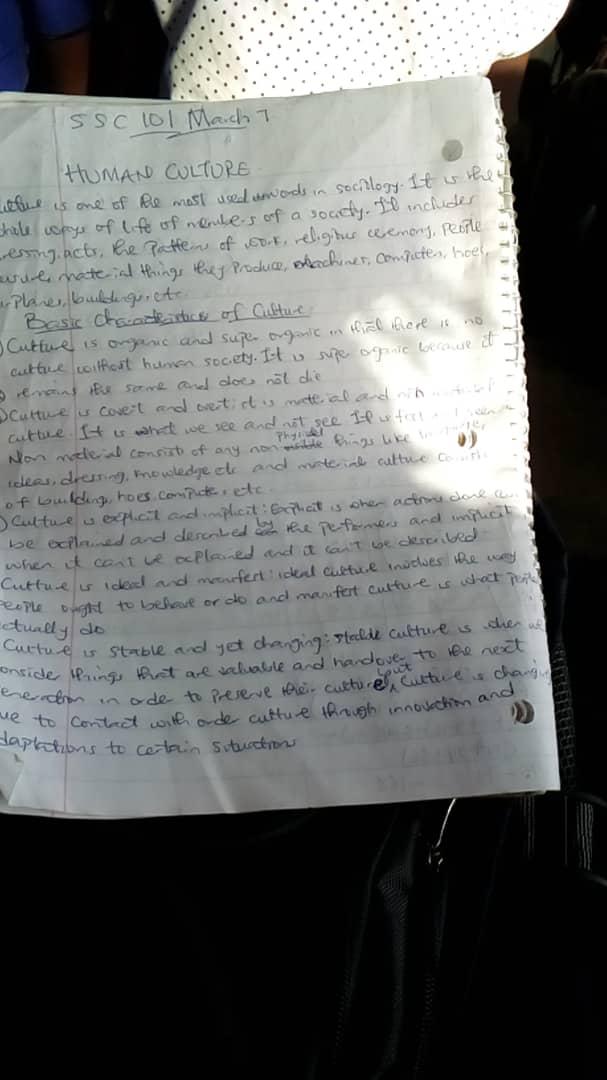 SSC 101 March 7
HUMAN CULTURE
is one of the most used words in sociology. It is the
ways of life of members of a society. It includes
acts, the patterns of work, religious ceremony, People
material things they Produce, machines, computers, hoes,
Planes, buildings, etc.
Basic Characteristics of Culture
Culture is organic and super organic in that there is no
culture without human society. It is super organic because it
remains the same and does not die
Culture is covert and overt: it is material and
culture. It is what we see and not see. It is
Non material consist of any non Physical things like
ideas, dressing, knowledge etc and material culture
of building, hoes, computer, etc.
Culture is explicit and implicit: Explicit is when actions done can
be explained and described by the performers and implicit
when it can't be explained and it can't be described
Culture is ideal and manifest: ideal culture involves the way
People ought to behave or do and manifest culture is what People
ctually do
Culture is Stable and yet changing: stable culture is when we
onside things that are valuable and handover to the next
eneration in order to preserve their culture but, culture is changing
ue to contact with order culture through innovation and
daptations to certain situations